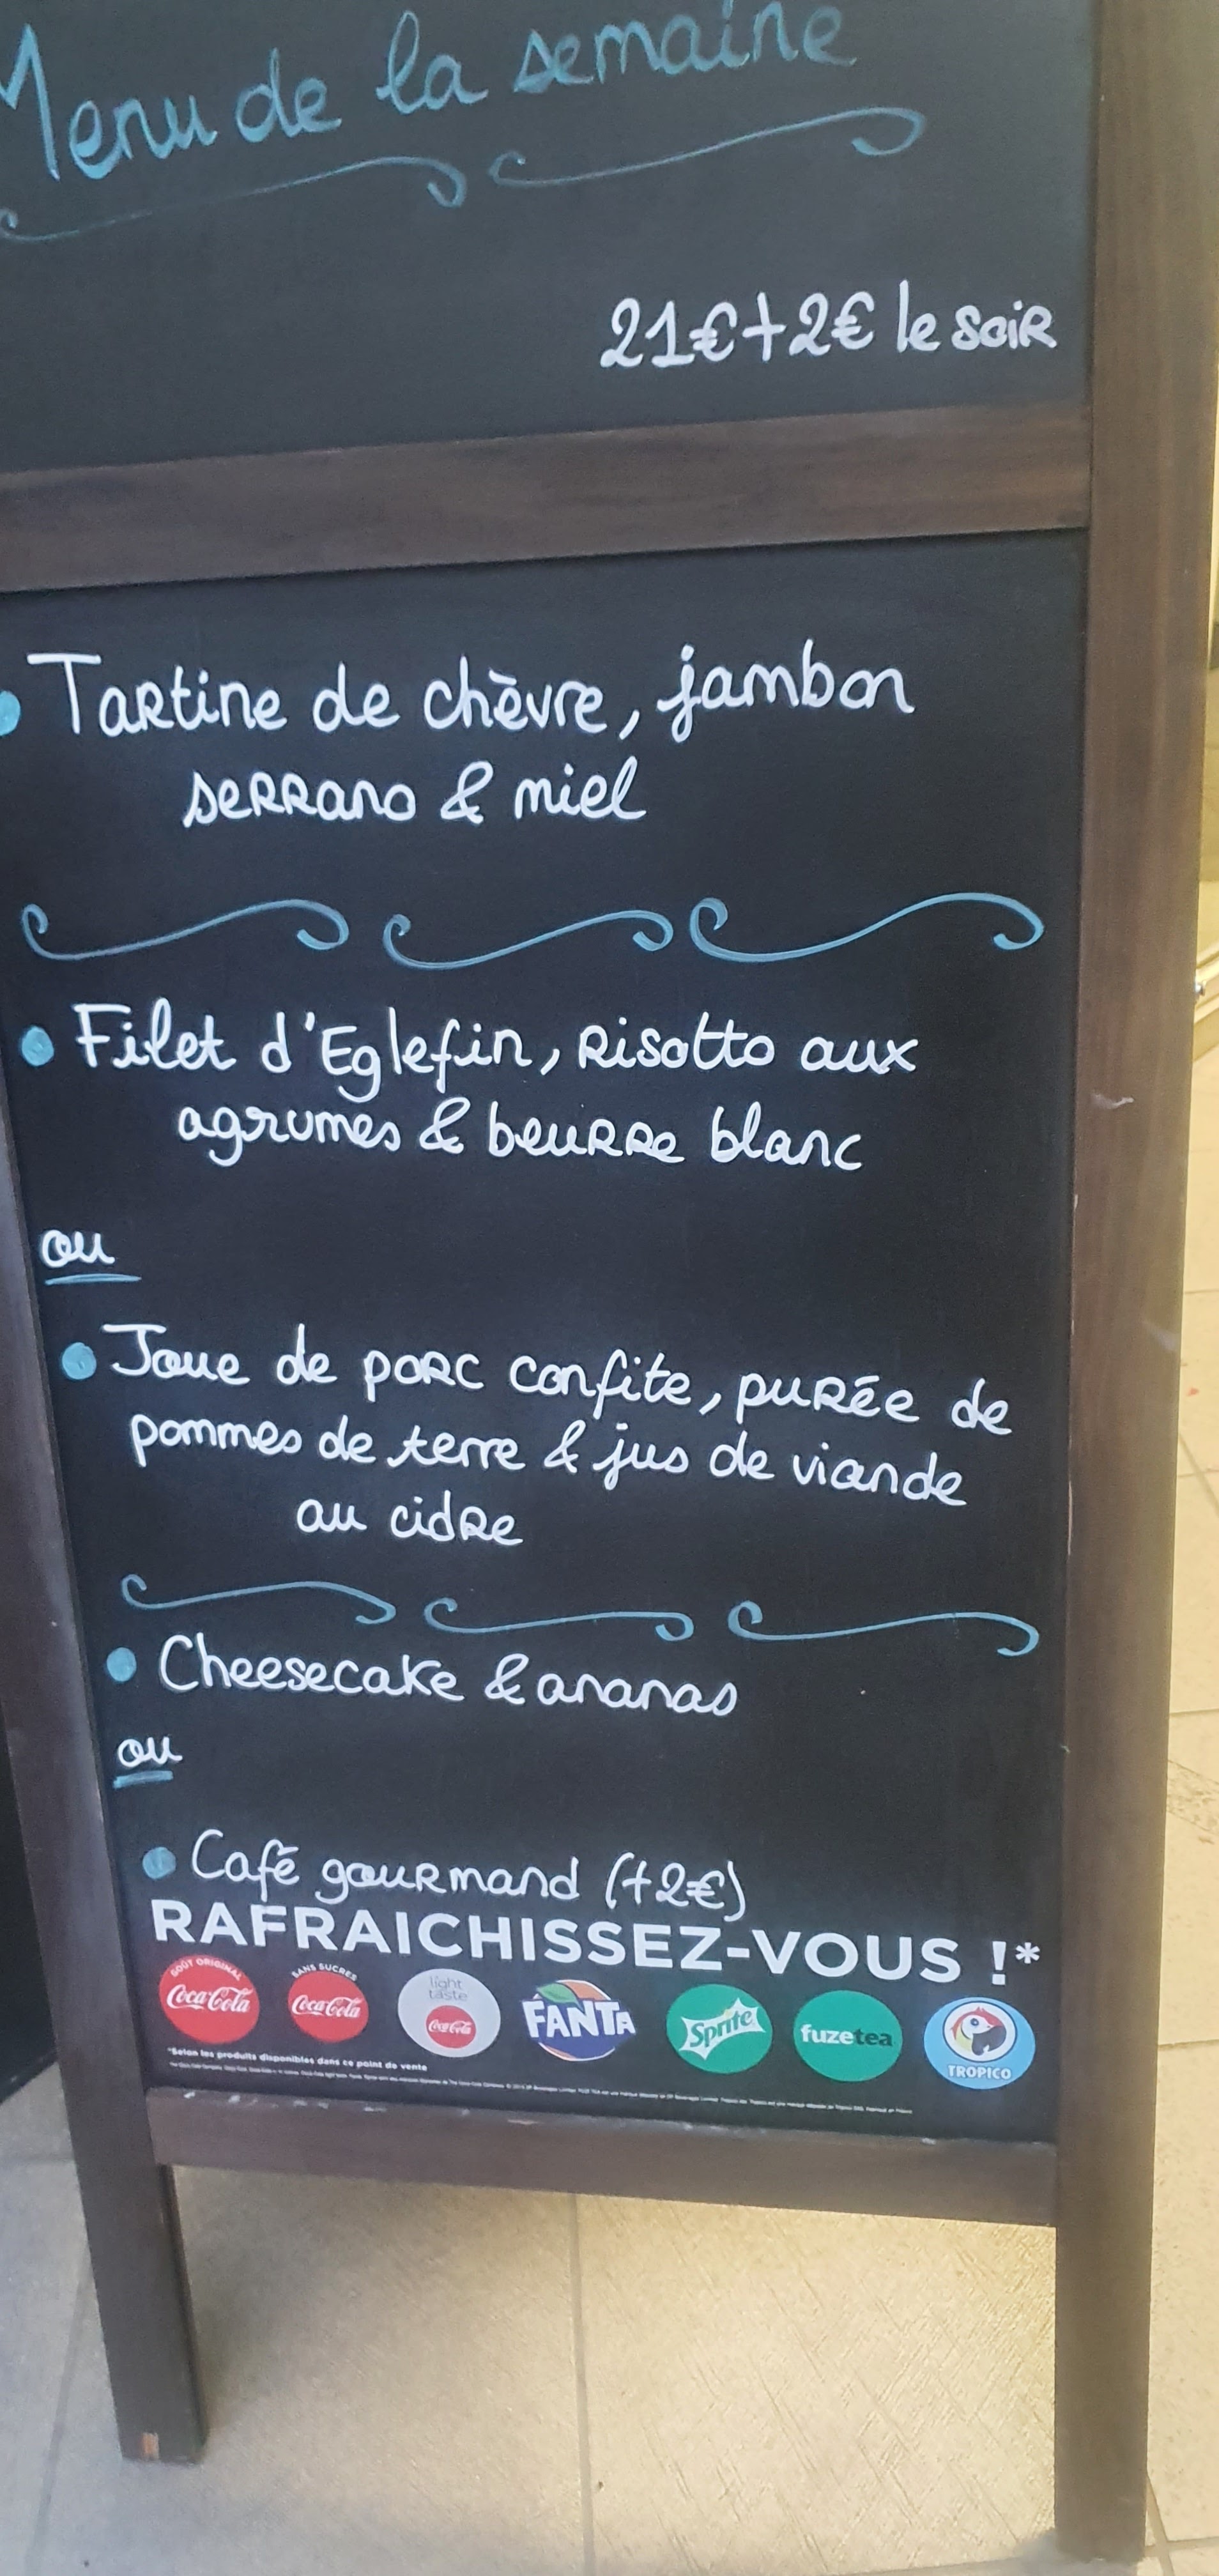 Menu de la semaine
21€+2€ le soir
Tartine de chèvre, jambon
serrano & miel
Filet d'Eglefin, risotto aux
agrumes & beurre blanc
ou
Joue de porc confite, purée de
pommes de terre & jus de viande
au cidre
Cheesecake & ananas
ou
Café gourmand (+2€)
RAFRAICHISSEZ-VOUS !*
GOÛT ORIGINAL
Coca-Cola
SANS SUCRES
Coca-Cola
light
taste
Coca-Cola
FANTA
Sprite
fuzetea
TROPICO
*Selon les produits disponibles dans ce point de vente